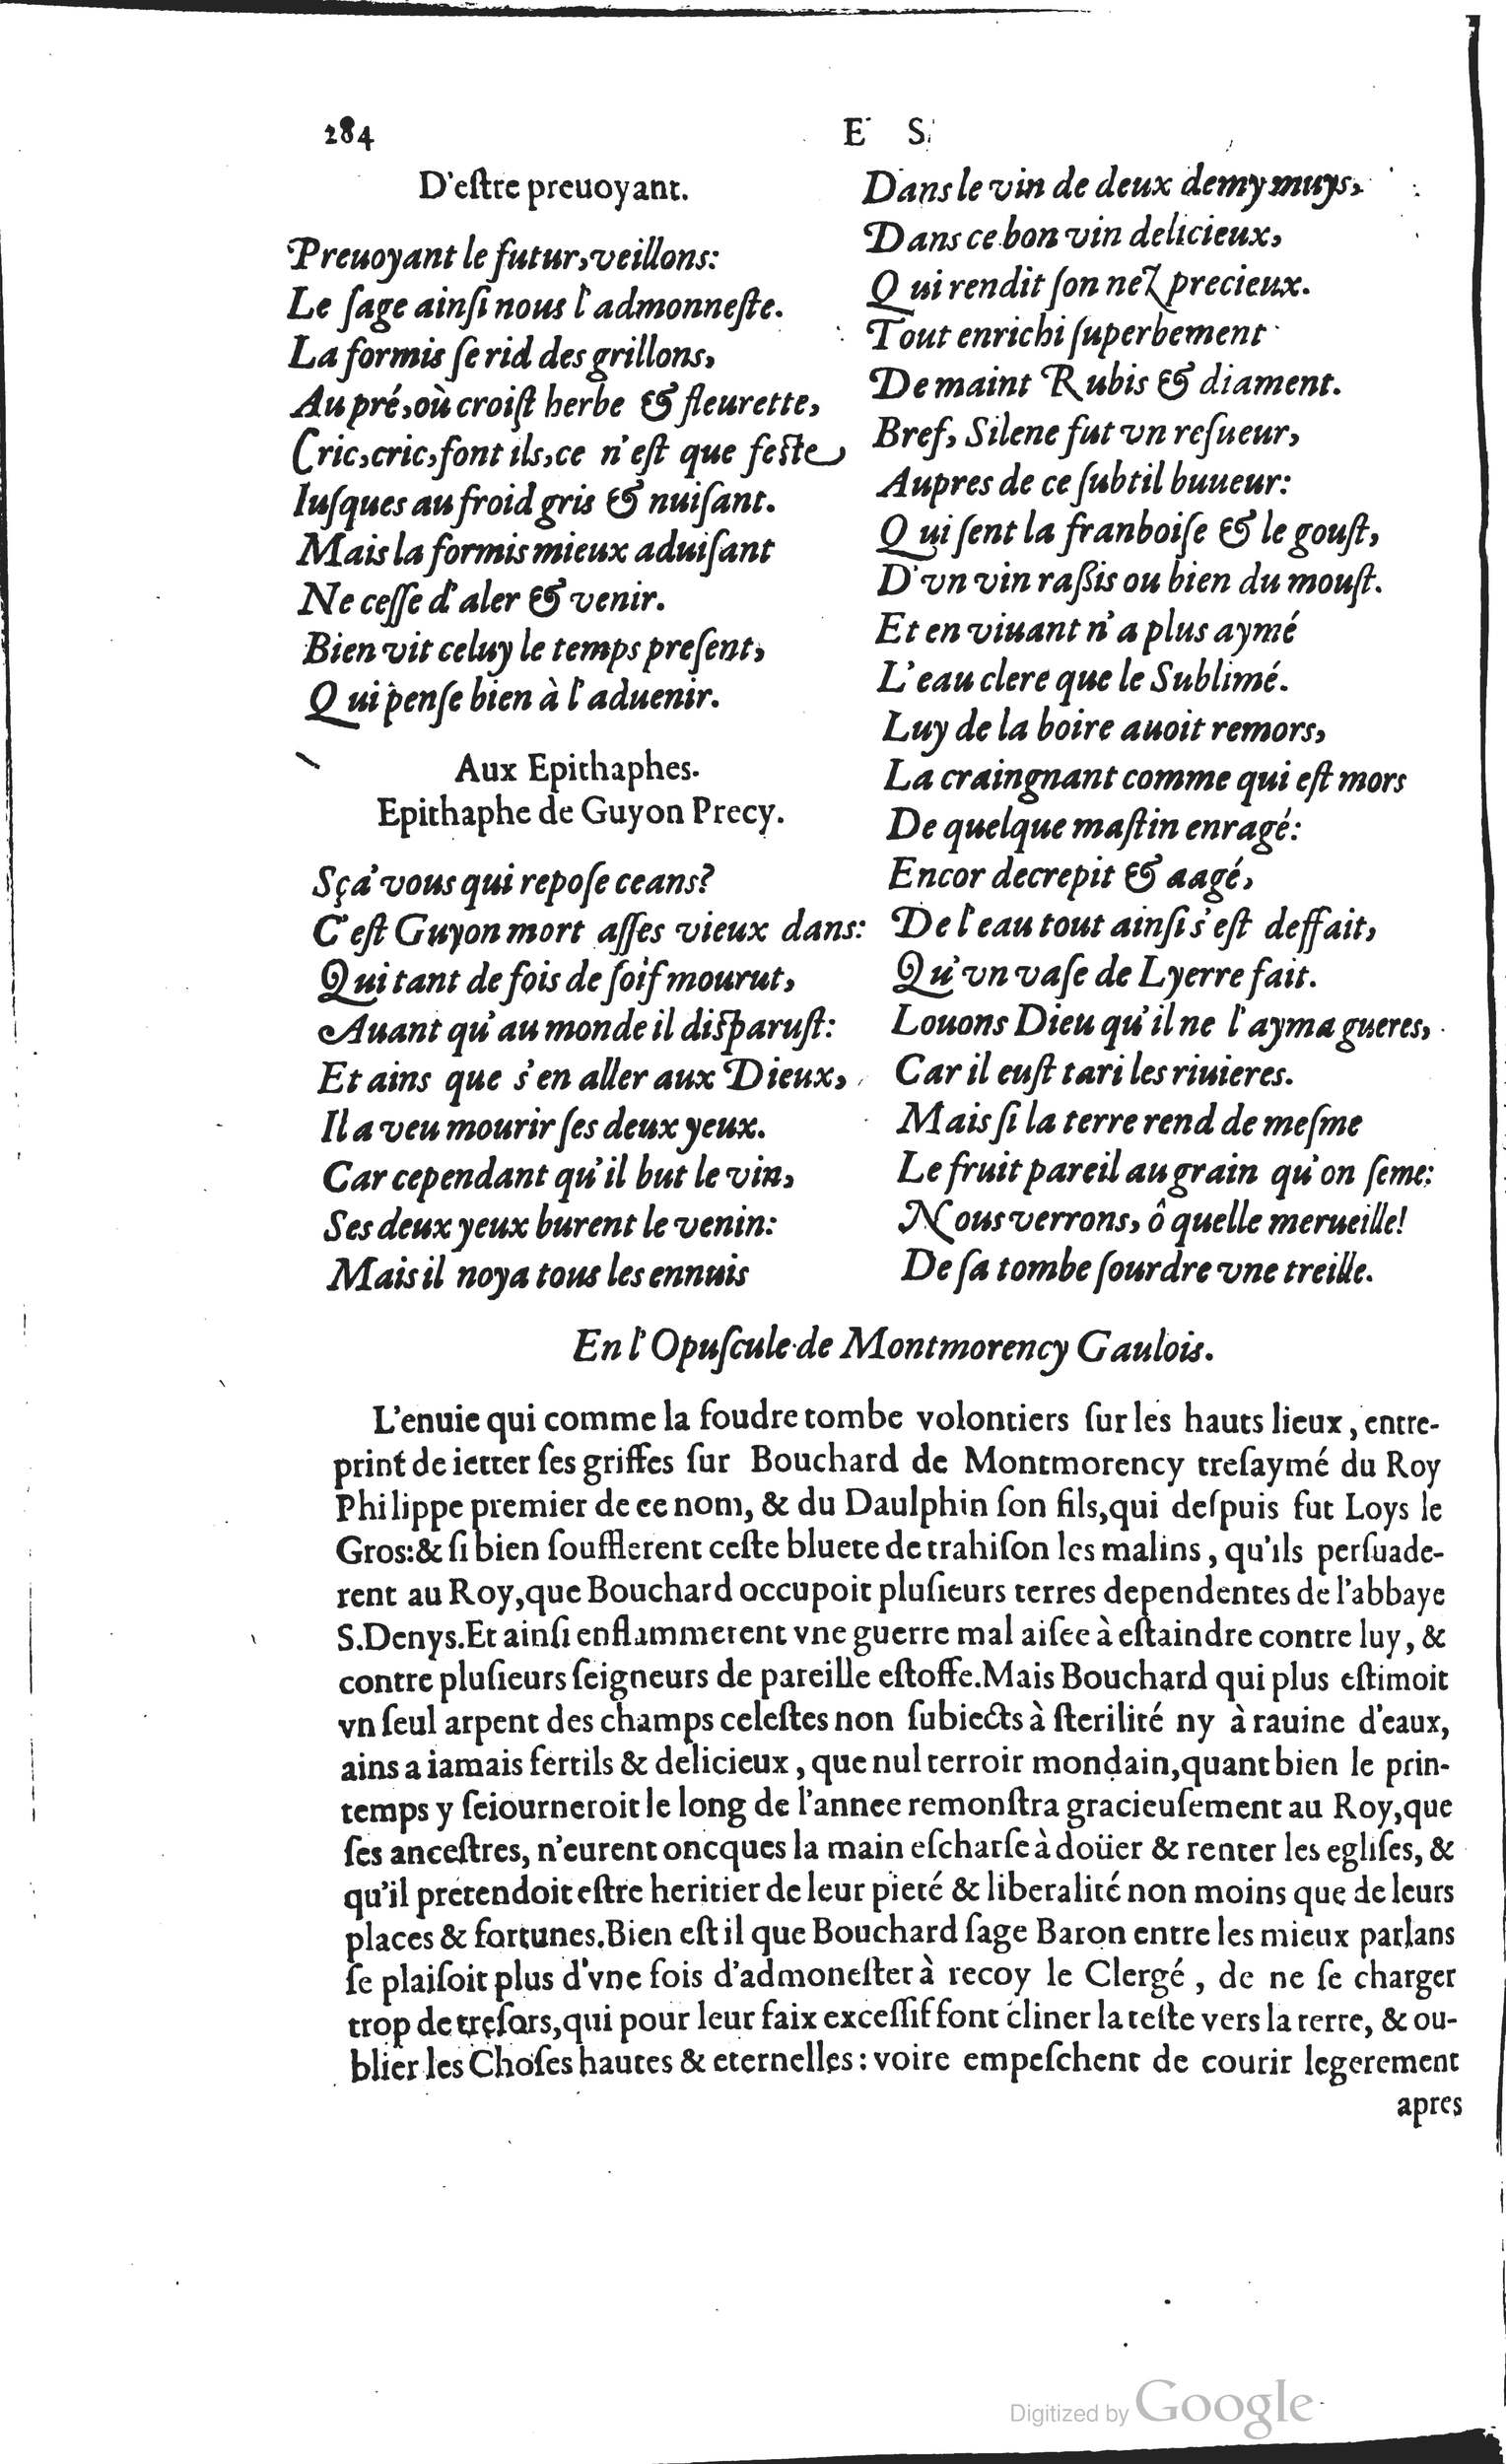 284
E S
D'eſtre preuoyant.
Preuoyant le futur, veillons:
Le ſage ainſi nous l'admonneſte.
La formis ſe rid des grillons,
Au pré, où croiſt herbe & fleurette,
Cric, cric, font ils, ce n'eſt que feſte
Iuſques au froid gris & nuiſant.
Mais la formis mieux aduiſant
Ne ceſſe d'aler & venir.
Bien vit celuy le temps preſent,
Qui penſe bien à l'aduenir.
Aux Epithaphes.
Epithaphe de Guyon Precy.
Sçà vous qui repoſe ceans?
C'eſt Guyon mort aſſes vieux dans:
Qui tant de fois de ſoif mourut,
Auant qu'au monde il diſparuſt:
Et ains que s'en aller aux Dieux,
Il a veu mourir ſes deux yeux.
Car cependant qu'il but le vin,
Ses deux yeux burent le venin:
Mais il noya tous les ennuis
Dans le vin de deux demy muys,
Dans ce bon vin delicieux,
Qui rendit ſon nez precieux.
Tout enrichi ſuperbement
De maint Rubis & diament.
Bref, Silene fut vn reſueur,
Aupres de ce ſubtil buueur:
Qui ſent la franboiſe & le gouſt,
D'vn vin raßis ou bien du mouſt.
Et en viuant n'a plus aymé
L'eau clere que le Sublimé.
Luy de la boire auoit remors,
La craingnant comme qui eſt mors
De quelque maſtin enragé:
Encor decrepit & aagé,
De l'eau tout ainſi s'eſt deffait,
Qu'vn vaſe de Lyerre fait.
Louons Dieu qu'il ne l'ayma gueres,
Car il euſt tari les riuieres.
Mais ſi la terre rend de meſme
Le fruit pareil au grain qu'on ſeme:
Nous verrons, ô quelle merueille!
De ſa tombe ſourdre vne treille.
En l'Opuſcule de Montmorency Gaulois.
L'enuie qui comme la foudre tombe volontiers ſur les hauts lieux, entre-
print de ietter ſes griffes ſur Bouchard de Montmorency treſaymé du Roy
Philippe premier de ce nom, & du Daulphin ſon fils, qui deſpuis fut Loys le
Gros: & ſi bien ſoufflerent ceſte bluete de trahiſon les malins, qu'ils perſuade-
rent au Roy, que Bouchard occupoit pluſieurs terres dependentes de l'abbaye
S. Denys. Et ainſi enflammerent vne guerre mal aiſee à eſtaindre contre luy, &
contre pluſieurs ſeigneurs de pareille eſtoffe. Mais Bouchard qui plus eſtimoit
vn ſeul arpent des champs celeſtes non ſubiects à ſterilité ny à rauine d'eaux,
ains a iamais fertils & delicieux, que nul terroir mondain, quant bien le prin-
temps y ſeiourneroit le long de l'annee remonſtra gracieuſement au Roy, que
ſes anceſtres, n'eurent oncques la main eſcharſe à doüer & renter les egliſes, &
qu'il pretendoit eſtre heritier de leur pieté & liberalité non moins que de leurs
places & fortunes. Bien eſt il que Bouchard ſage Baron entre les mieux parlans
ſe plaiſoit plus d'vne fois d'admoneſter à recoy le Clergé, de ne ſe charger
trop de treſors, qui pour leur faix exceſſif font cliner la teſte vers la terre, & ou-
blier les Choſes hautes & eternelles: voire empeſchent de courir legerement
apres
Digitized by Google